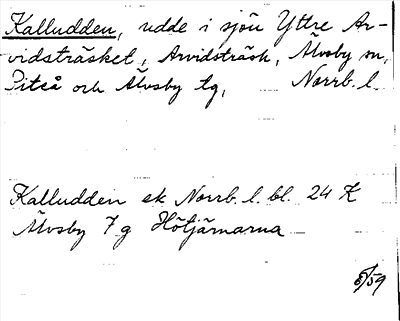 Kalludden, udde i sjön Yttre Ar-
vidsträsket, Arvidsträsk, Älvsby sn,
Piteå och Älvsby tg, Norrb. l.
Kalludden ek Norrb. l. bl. 24 K
Älvsby 7 g Hötjärnarna
5/59